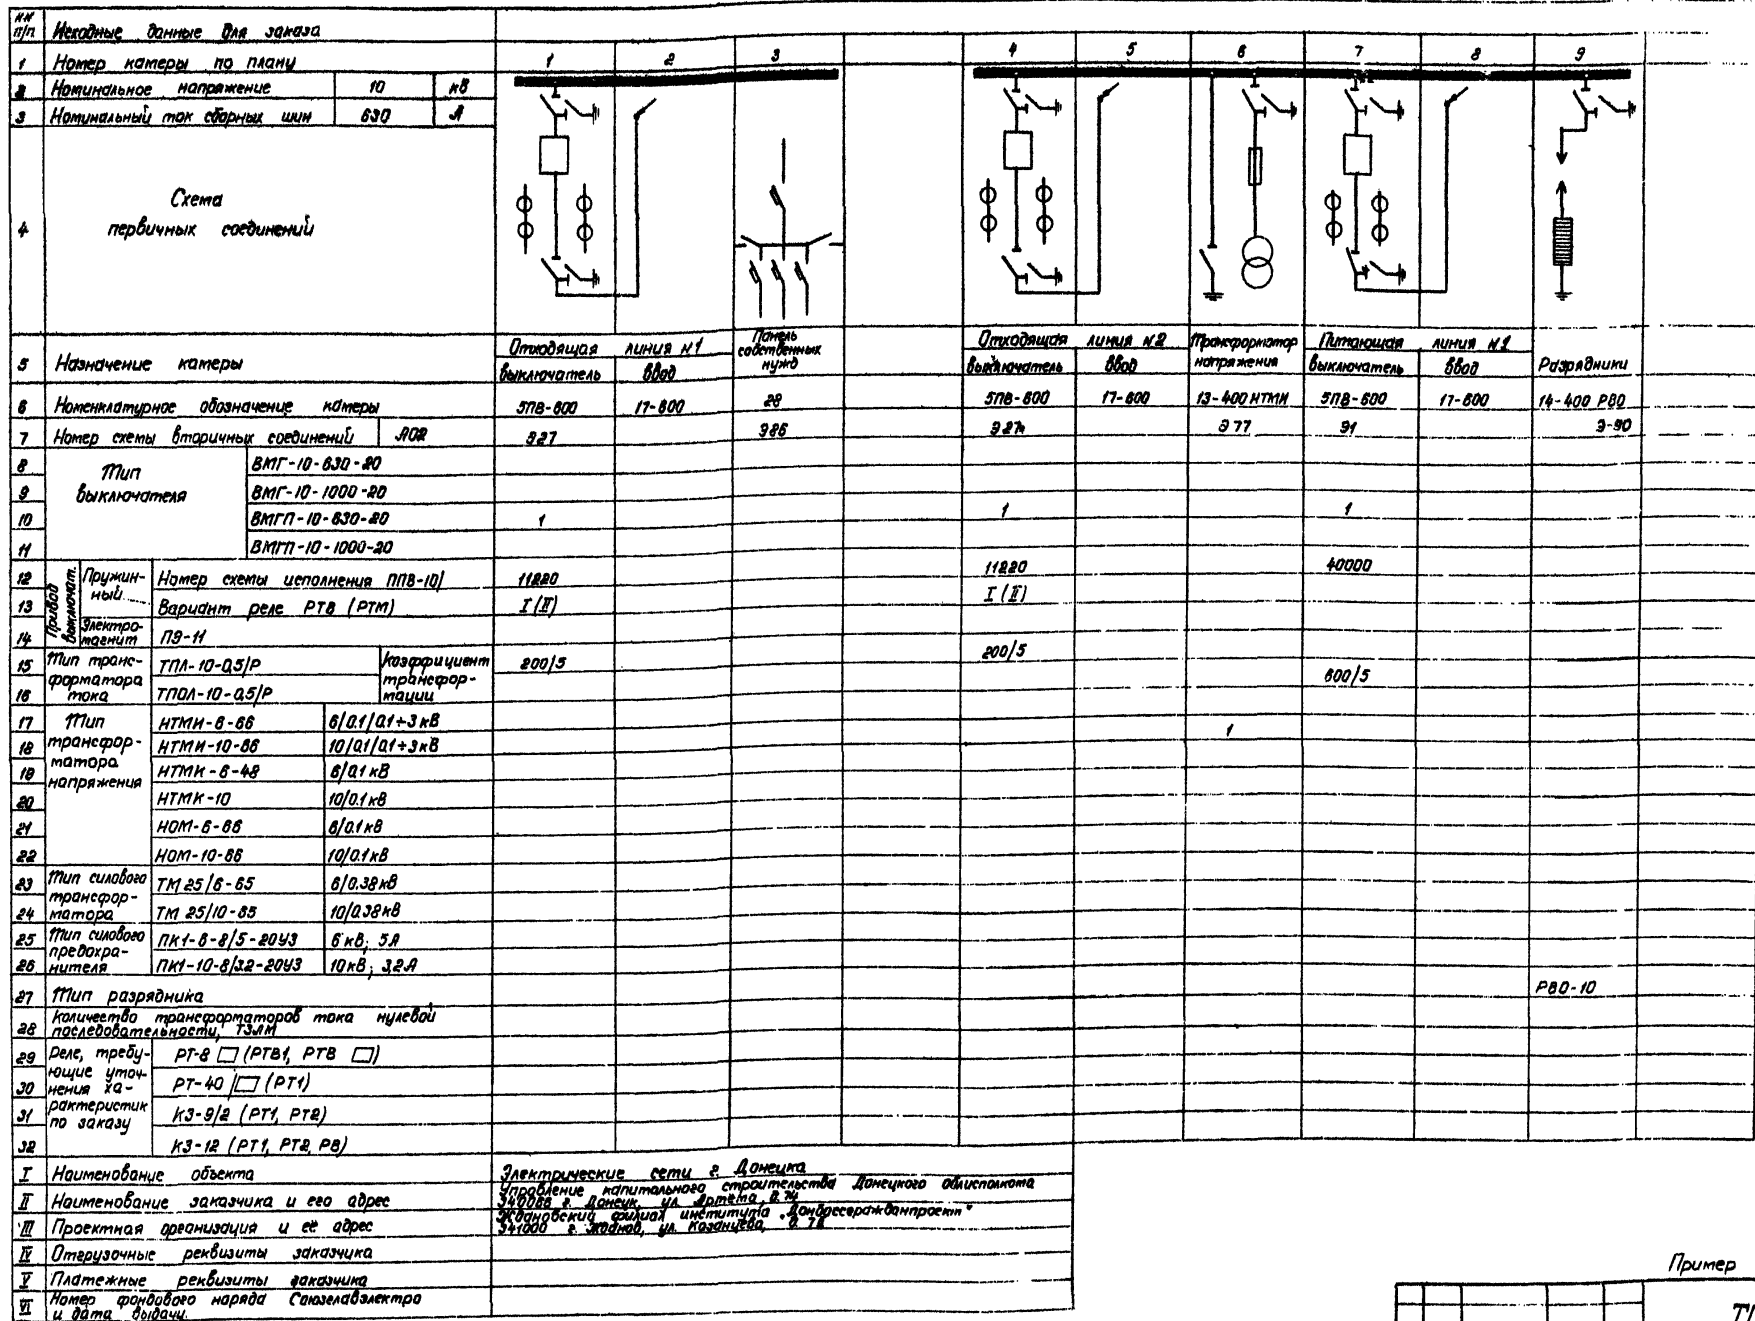 NN п/п Исходные данные для заказа
1 Номер камеры по плану 1 2 3 4 5 6 7 8 9
2 Номинальное напряжение 10 кВ
3 Номинальный ток сборных шин 630 А
4 Схема
первичных соединений
5 Назначение камеры
Отходящая линия N1
выключатель ввод
Панель
собственных
нужд
Отходящая линия N2
выключатель ввод
Трансформатор
напряжения
Питающая линия N1
выключатель ввод
Разрядники
6 Номенклатурное обозначение камеры 5ПВ-600 17-600 28 5ПВ-600 17-600 13-400 НТМИ 5ПВ-600 17-600 14-400 РВО
7 Номер схемы вторичных соединений Л02 Э27 Э86 Э27а Э77 91 Э-90
Тип
выключателя
8 ВМГ-10-630-20
9 ВМГ-10-1000-20
10 ВМГП-10-630-20 1 1 1
11 ВМГП-10-1000-20
Привод
выключат.
Пружин-
ный
12 Номер схемы исполнения ППВ-10/ 11220 11220 40000
13 Вариант реле РТВ (РТМ) I (II) I (II)
Электро-
магнит
14 ПЭ-11
Тип транс-
форматора
тока
15 ТПЛ-10-0,5/Р 200/5 200/5
16 ТПОЛ-10-0,5/Р 600/5
Коэффициент
трансфор-
мации
Тип
трансфор-
матора
напряжения
17 НТМИ-6-66 6/0.1/0.1÷3 кВ
18 НТМИ-10-66 10/0.1/0.1÷3 кВ 1
19 НТМК-6-48 6/0.1 кВ
20 НТМК-10 10/0.1 кВ
21 НОМ-6-66 6/0.1 кВ
22 НОМ-10-66 10/0.1 кВ
Тип силового
трансфор-
матора
23 ТМ 25/6-65 6/0.38 кВ
24 ТМ 25/10-65 10/0.38 кВ
Тип силового
предохра-
нителя
25 ПК1-6-8/5-20У3 6 кВ; 5 А
26 ПК1-10-8/3.2-20У3 10 кВ; 3,2 А
27 Тип разрядника РВО-10
28 Количество трансформаторов тока нулевой
последовательности, ТЗЛМ
Реле, требу-
ющие уточ-
нения ха-
рактеристик
по заказу
29 РТ-8 (РТВ1, РТВ )
30 РТ-40/ (РТ1)
31 КЗ-9/2 (РТ1, РТ2)
32 КЗ-12 (РТ1, РТ2, РВ)
I Наименование объекта Электрические сети г. Донецка
II Наименование заказчика и его адрес Управление капитального строительства Донецкого облисполкома
340066 г. Донецк, ул. Артёма, д. 74
III Проектная организация и её адрес Ждановский филиал института „Донбассгражданпроект"
341000 г. Жданов, ул. Казанцева,
IV Отгрузочные реквизиты заказчика
V Платежные реквизиты заказчика
VI Номер фондового наряда Союзглавэлектро
и дата выдачи.
Пример